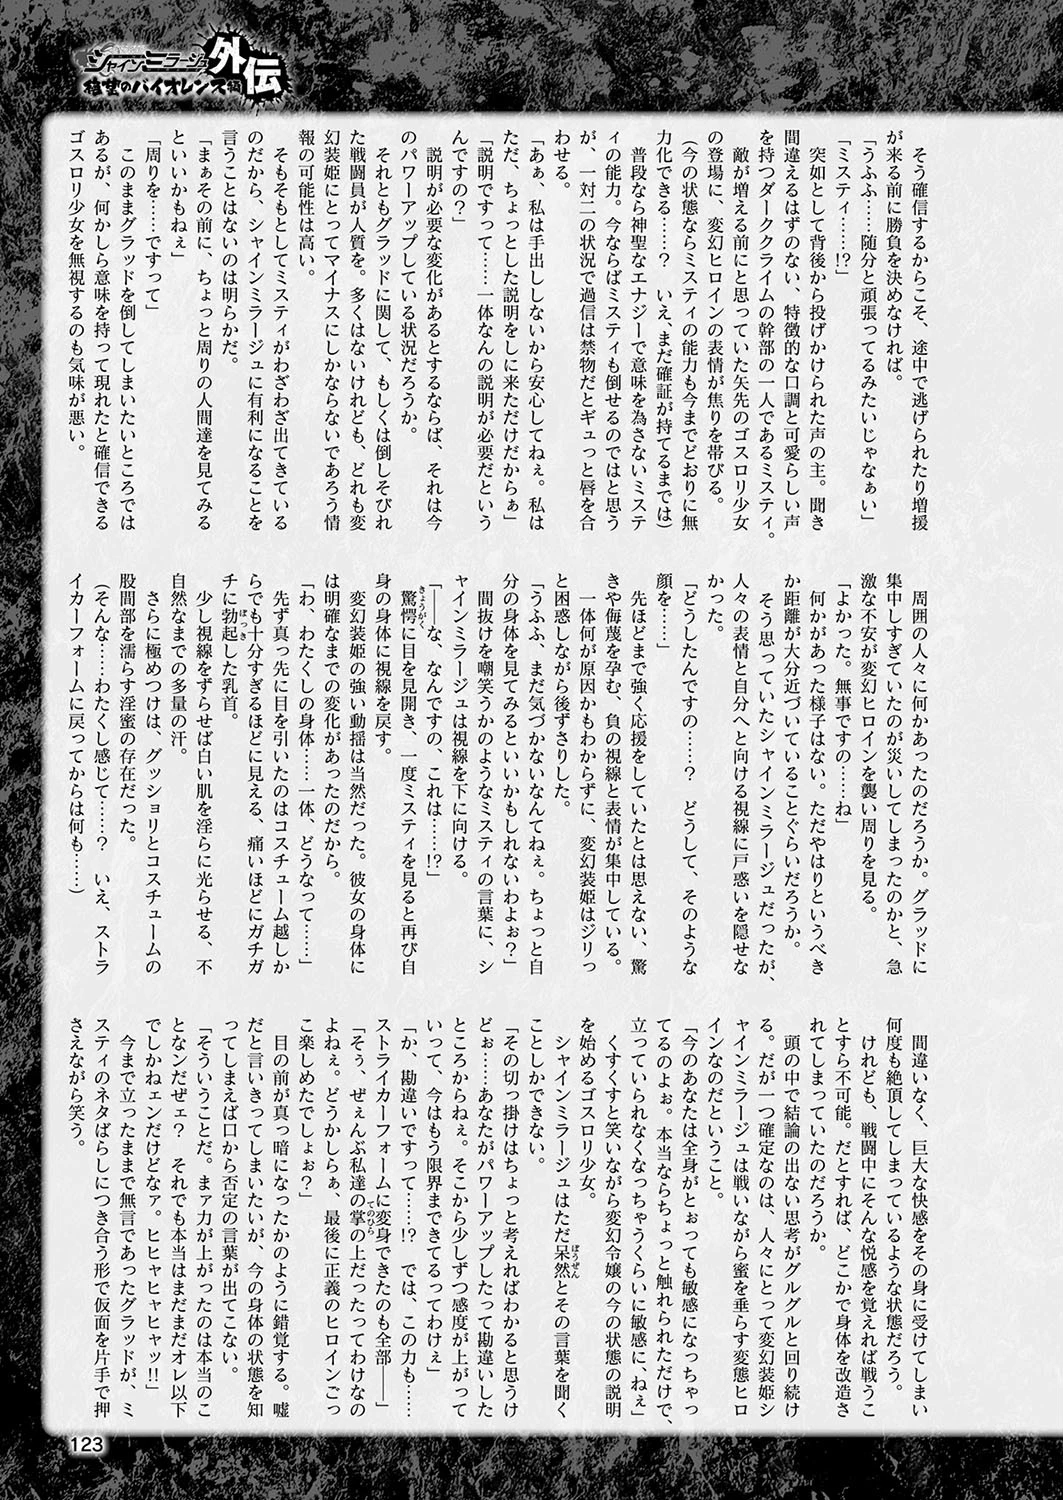 シャインミラージュ
外伝
絶望のバイオレンス編
そう確信するからこそ、途中で逃げられたり増援
が来る前に勝負を決めなければ。
「うふふ……随分と頑張ってるみたいじゃなぁい」
「ミスティ……!?」
突如として背後から投げかけられた声の主。聞き
間違えるはずのない、特徴的な口調と可愛らしい声
を持つダーククライムの幹部の一人であるミスティ。
敵が増える前にと思っていた矢先のゴスロリ少女
の登場に、変幻ヒロインの表情が焦りを帯びる。
(今の状態ならミスティの能力も今までどおりに無
力化できる……? いえ、まだ確証が持てるまでは)
普段なら神聖なエナジーで意味を為さないミステ
ィの能力。今ならばミスティも倒せるのではと思う
が、一対二の状況で過信は禁物だとギュっと唇を合
わせる。
「あぁ、私は手出ししないから安心してねぇ。私は
ただ、ちょっとした説明をしに来ただけだからぁ」
「説明ですって……一体なんの説明が必要だという
んですの?」
説明が必要な変化があるとするならば、それは今
のパワーアップしている状況だろうか。
それともグラッドに関して、もしくは倒しそびれ
た戦闘員が人質を。多くはないけれども、どれも変
幻装姫にとってマイナスにしかならないであろう情
報の可能性は高い。
そもそもとしてミスティがわざわざ出てきている
のだから、シャインミラージュに有利になることを
言うことはないのは明らかだ。
「まぁその前に、ちょっと周りの人間達を見てみる
といいかもねぇ」
「周りを……ですって」
このままグラッドを倒してしまいたいところでは
あるが、何かしら意味を持って現れたと確信できる
ゴスロリ少女を無視するのも気味が悪い。
周囲の人々に何かあったのだろうか。グラッドに
集中しすぎていたのが災いしてしまったのかと、急
激な不安が変幻ヒロインを襲い周りを見る。
「よかった。無事ですの……ね」
何かがあった様子はない。ただやはりというべき
か距離が大分近づいていることぐらいだろうか。
そう思っていたシャインミラージュだったが、
人々の表情と自分へと向ける視線に戸惑いを隠せな
かった。
「どうしたんですの……? どうして、そのような
顔を……」
先ほどまで強く応援をしていたとは思えない、驚
きや侮蔑を孕む、負の視線と表情が集中している。
一体何が原因かもわからずに、変幻装姫はジリっ
と困惑しながら後ずさりした。
「うふふ、まだ気づかないなんてねぇ。ちょっと自
分の身体を見てみるといいかもしれないわよぉ?」
間抜けを嘲笑うかのようなミスティの言葉に、シ
ャインミラージュは視線を下に向ける。
「――な、なんですの、これは……!?」
驚愕に目を見開き、一度ミスティを見ると再び自
きょうがく
身の身体に視線を戻す。
変幻装姫の強い動揺は当然だった。彼女の身体に
は明確なまでの変化があったのだから。
「わ、わたくしの身体……一体、どうなって……」
先ず真っ先に目を引いたのはコスチューム越しか
らでも十分すぎるほどに見える、痛いほどにガチガ
チに勃起した乳首。
ぼっき
少し視線をずらせば白い肌を淫らに光らせる、不
自然なまでの多量の汗。
さらに極めつけは、グッショリとコスチュームの
股間部を濡らす淫蜜の存在だった。
(そんな……わたくし感じて……? いえ、ストラ
イカーフォームに戻ってからは何も……)
間違いなく、巨大な快感をその身に受けてしまい
何度も絶頂してしまっているような状態だろう。
けれども、戦闘中にそんな悦感を覚えれば戦うこ
とすら不可能。だとすれば、どこかで身体を改造さ
れてしまっていたのだろうか。
頭の中で結論の出ない思考がグルグルと回り続け
る。だが一つ確定なのは、人々にとって変幻装姫シ
ャインミラージュは戦いながら蜜を垂らす変態ヒロ
インなのだということ。
「今のあなたは全身がとぉっても敏感になっちゃっ
てるのよぉ。本当ならちょっと触れられただけで、
立っていられなくなっちゃうくらいに敏感に、ねぇ」
くすくすと笑いながら変幻令嬢の今の状態の説明
を始めるゴスロリ少女。
シャインミラージュはただ呆然とその言葉を聞く
ぼうぜん
ことしかできない。
「その切っ掛けはちょっと考えればわかると思うけ
どぉ……あなたがパワーアップしたって勘違いした
ところからねぇ。そこから少しずつ感度が上がって
いって、今はもう限界まできてるってわけぇ」
「か、勘違いですって……!? では、この力も……
ストライカーフォームに変身できたのも全部――」
「そぅ、ぜぇんぶ私達の掌の上だったってわけなの
てのひら
よねぇ。どうかしらぁ、最後に正義のヒロインごっ
こ楽しめたでしょぉ?」
目の前が真っ暗になったかのように錯覚する。嘘
だと言いきってしまいたいが、今の身体の状態を知
ってしまえば口から否定の言葉が出てこない。
「そういうことだ。まァ力が上がったのは本当のこ
となンだぜェ? それでも本当はまだまだオレ以下
でしかねェンだけどなァ。ヒヒャヒャヒャッ!!」
今まで立ったままで無言であったグラッドが、ミ
スティのネタばらしにつき合う形で仮面を片手で押
さえながら笑う。
123